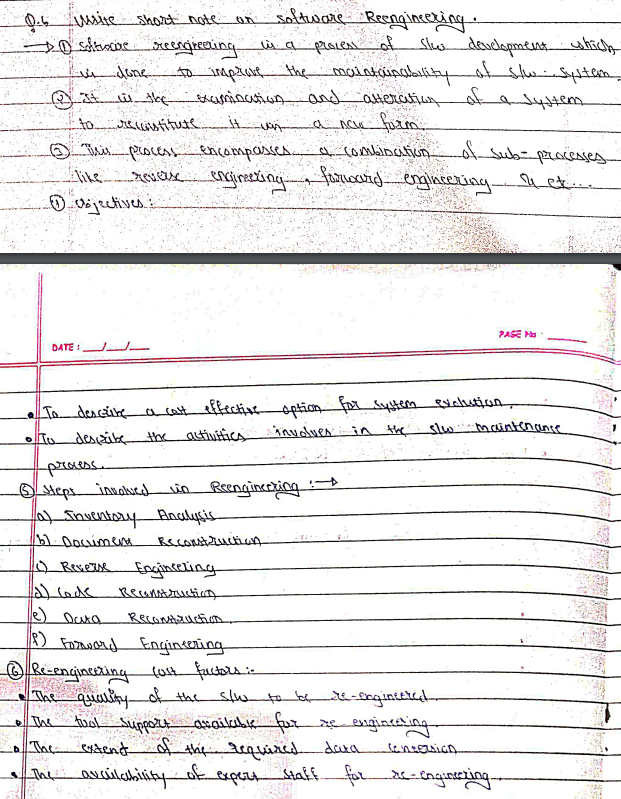 Q.6 Write short note on software Reengineering.
→ ① Software reengineering is a process of s/w development which
is done to improve the maintainability of s/w system.
② It is the examination and alteration of a system
to reconstitute it in a new form.
③ This process encompasses a combination of sub-processes
like reverse engineering, forward engineering etc...
④ objectives :
DATE : __/__/__
PAGE No
• To describe a cost effective option for system evolution.
• To describe the activities involves in the s/w maintenance
process.
⑤ Steps involved in Reengineering :→
a) Inventory Analysis
b) Document Reconstruction
c) Reverse Engineering
d) Code Reconstruction
e) Data Reconstruction.
f) Forward Engineering
⑥ Re-engineering cost factors :-
• The quality of the s/w to be re-engineered.
• The tool support available for re engineering.
• The extent of the required data conversion
• The availability of expert staff for re-engineering.